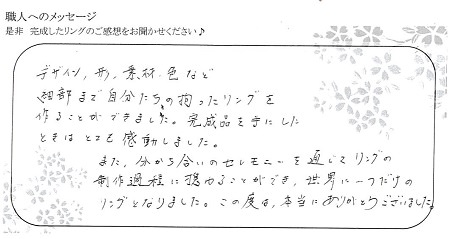 職人へのメッセージ
是非 完成したリングのご感想をお聞かせください♪
デザイン、形、素材、色など
細部まで自分たちの拘ったリングを
作ることができました。完成品を手にした
ときはとても感動しました。
また、分かち合いのセレモニーを通じてリングの
制作過程に携わることができ、世界に一つだけの
リングとなりました。この度は、本当にありがとうございました。